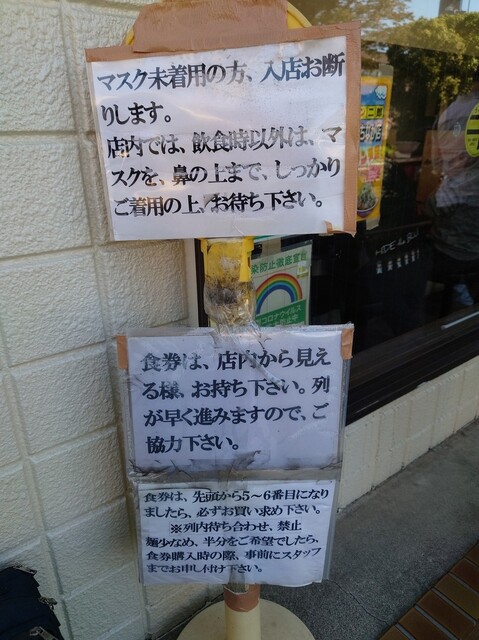 マスク未着用の方、入店お断
りします。
店内では、飲食時以外は、マ
スクを、鼻の上まで、しっかり
ご着用の上、お待ち下さい。
染防止徹底宣言
コロナウイルス
食券は、店内から見え
る様、お持ち下さい。列
が早く進みますので、ご
協力下さい。
食券は、先頭から5～6番目になり
ましたら、必ずお買い求め下さい。
※列内待ち合わせ、禁止
麺少なめ、半分をご希望でしたら、
食券購入時の際、事前にスタッフ
までお申し付け下さい。